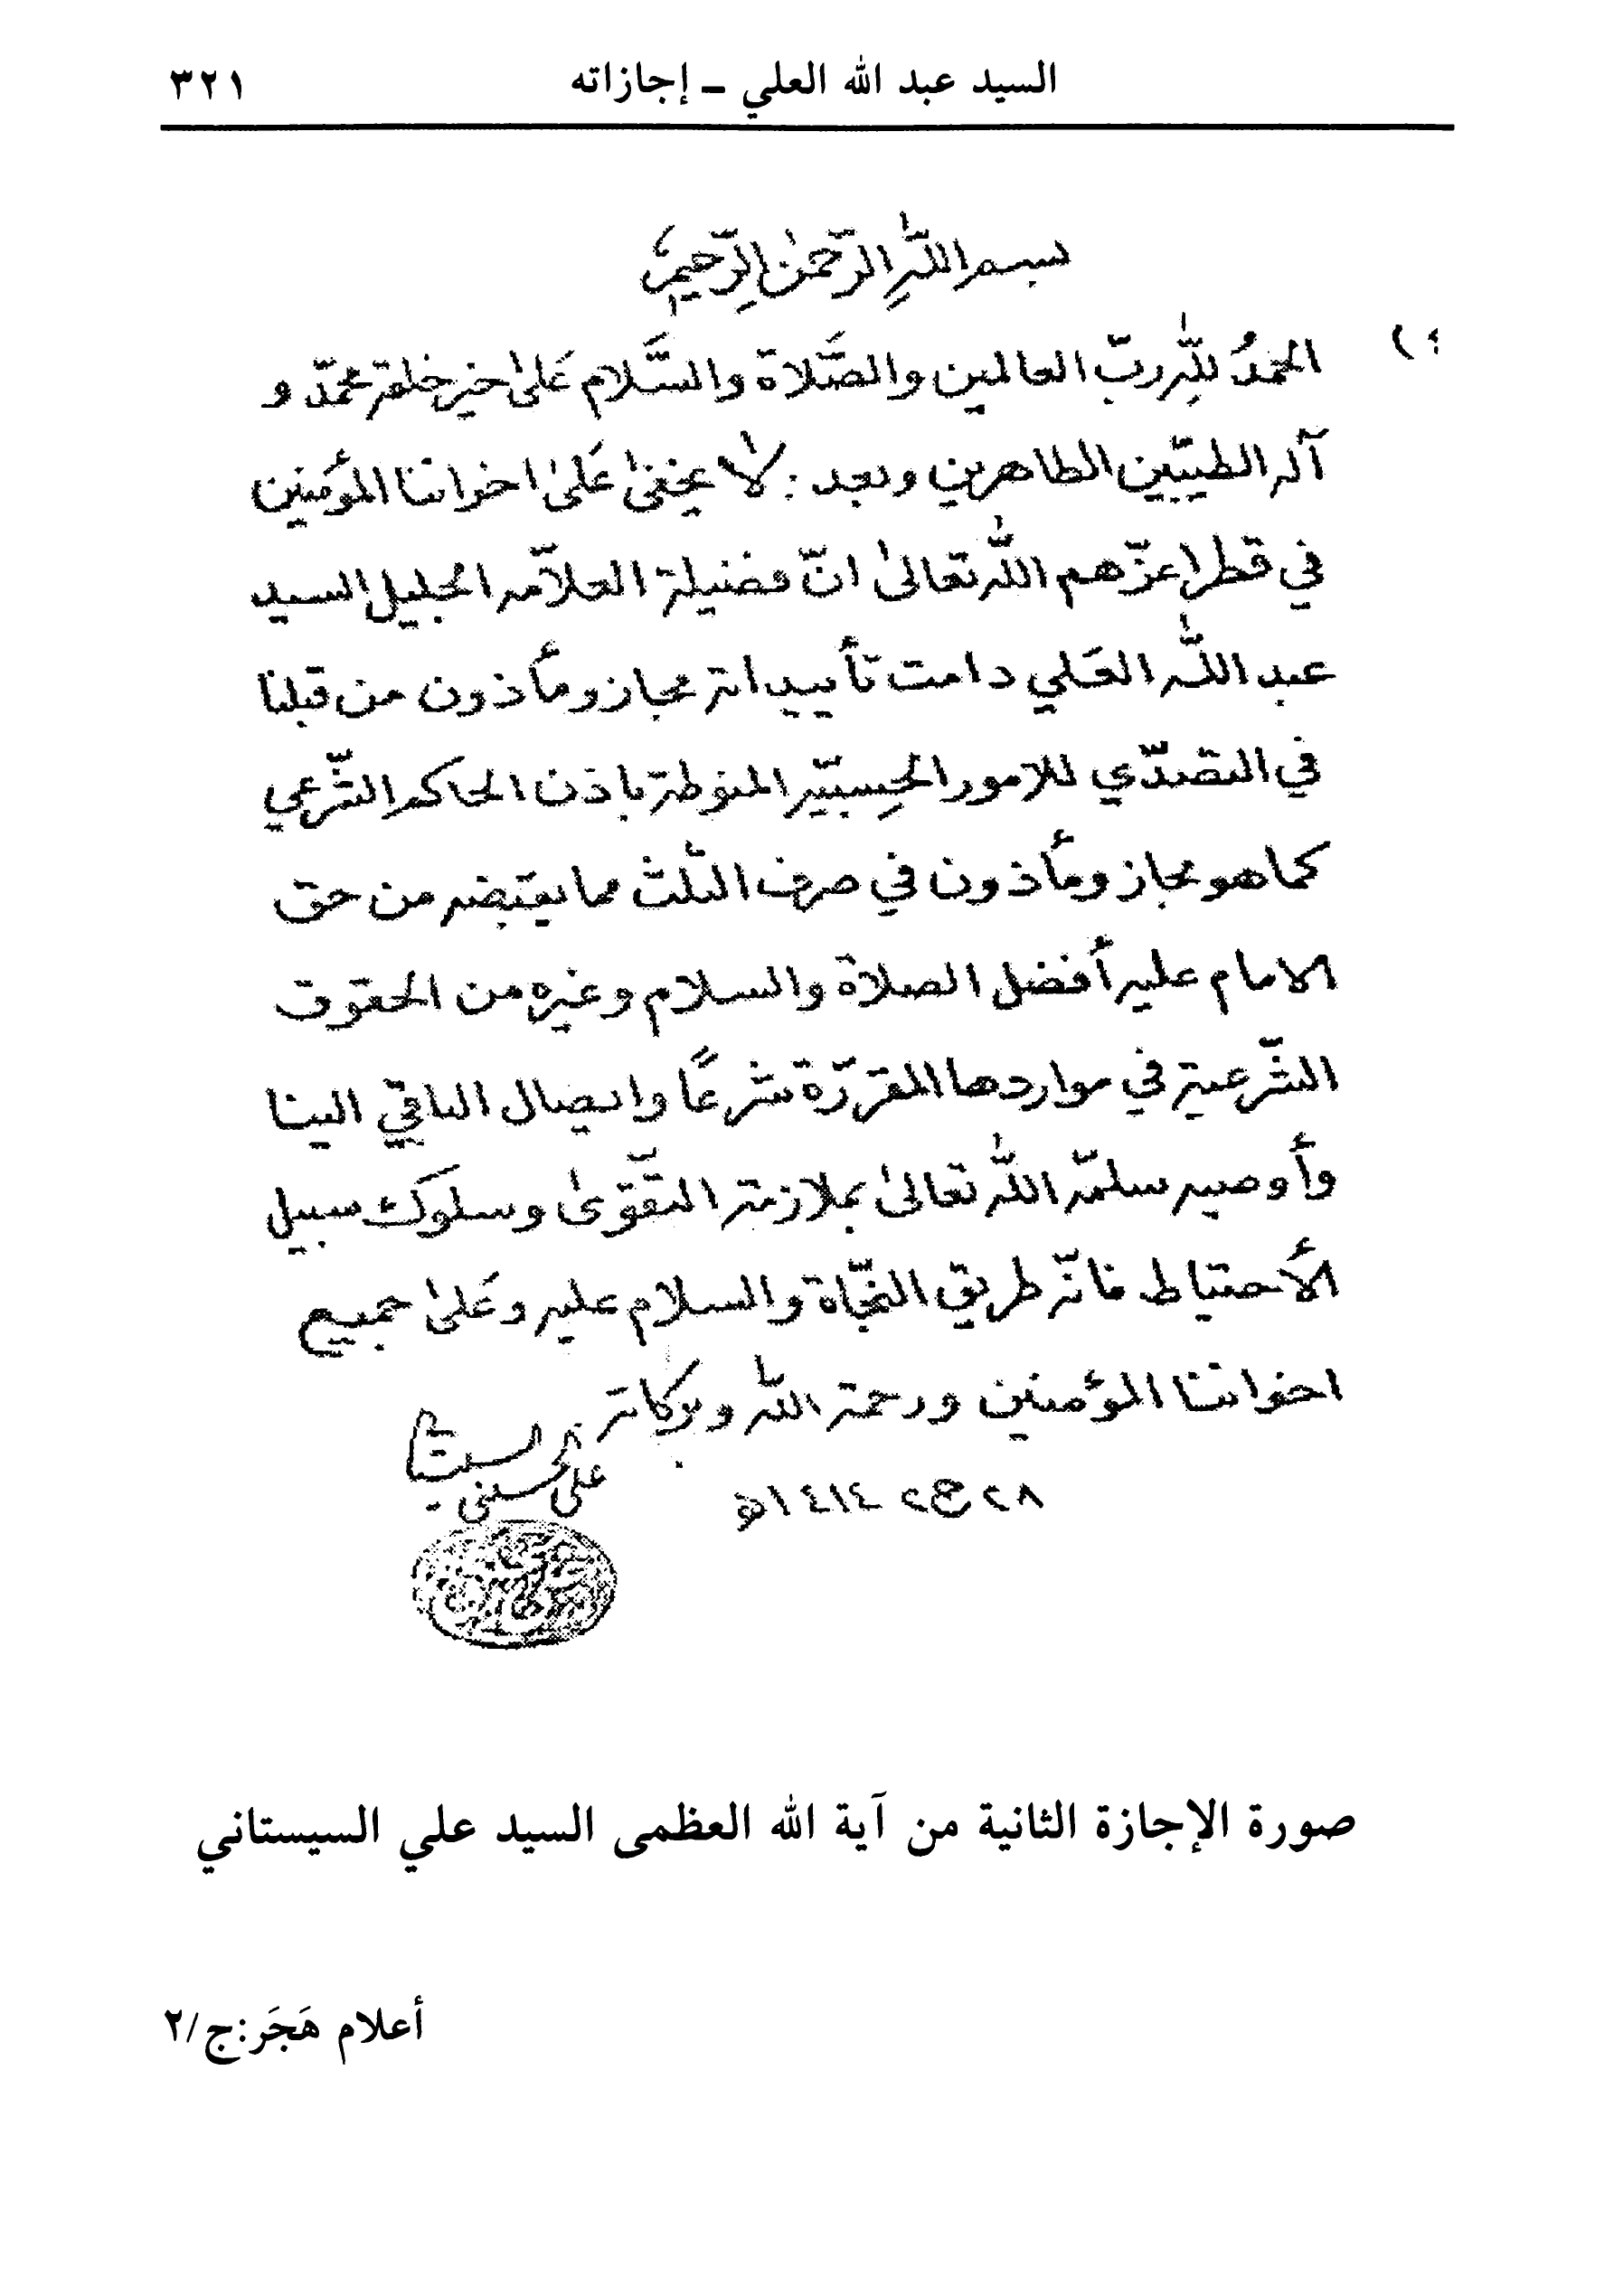 السيد عبد الله العلي ـ إجازاته ٣٢١
بسم اللّٰهِ الرّحمٰن الرّحيم
الحمدُ للّٰهِ ربّ العالمين والصَّلاة والسَّلام عَلىٰ خير خلقه محمّد و
آله الطيّبين الطاهرين وبعد : لا يخفىٰ عَلىٰ اخواننا المؤمنين
في قطر اعزّهم اللّٰه تعالىٰ انّ فضيلة العلاّمه الجليل السيد
عبد اللّٰه العَلي دامت تأييداته مجاز ومأذون من قبلنا
في التصدّي للامور الحِسبيّه المنوطة باذن الحاكم الشّرعي
كما هو مجاز ومأذون في صرف الثلث مما يقبضه من حق
الامام عليه أفضل الصلاة والسلام وغيره من الحقوق
الشّرعية في مواردها المقرّرة شرعًا وايصال الباقي الينا
وأوصيه سلمّه اللّٰه تعالىٰ بملازمة التّقوىٰ وسلوك سبيل
الأحتياط فانّه طريق النّجاة والسلام عليه وعَلىٰ جميع
اخواننا المؤمنين ورحمة اللّٰه وبركاته
٢٨ ج٢ ١٤١٤ه
علي الحسيني السيستاني
صورة الإجازة الثانية من آية الله العظمى السيد علي السيستاني
أعلام هَجَر:ج/٢